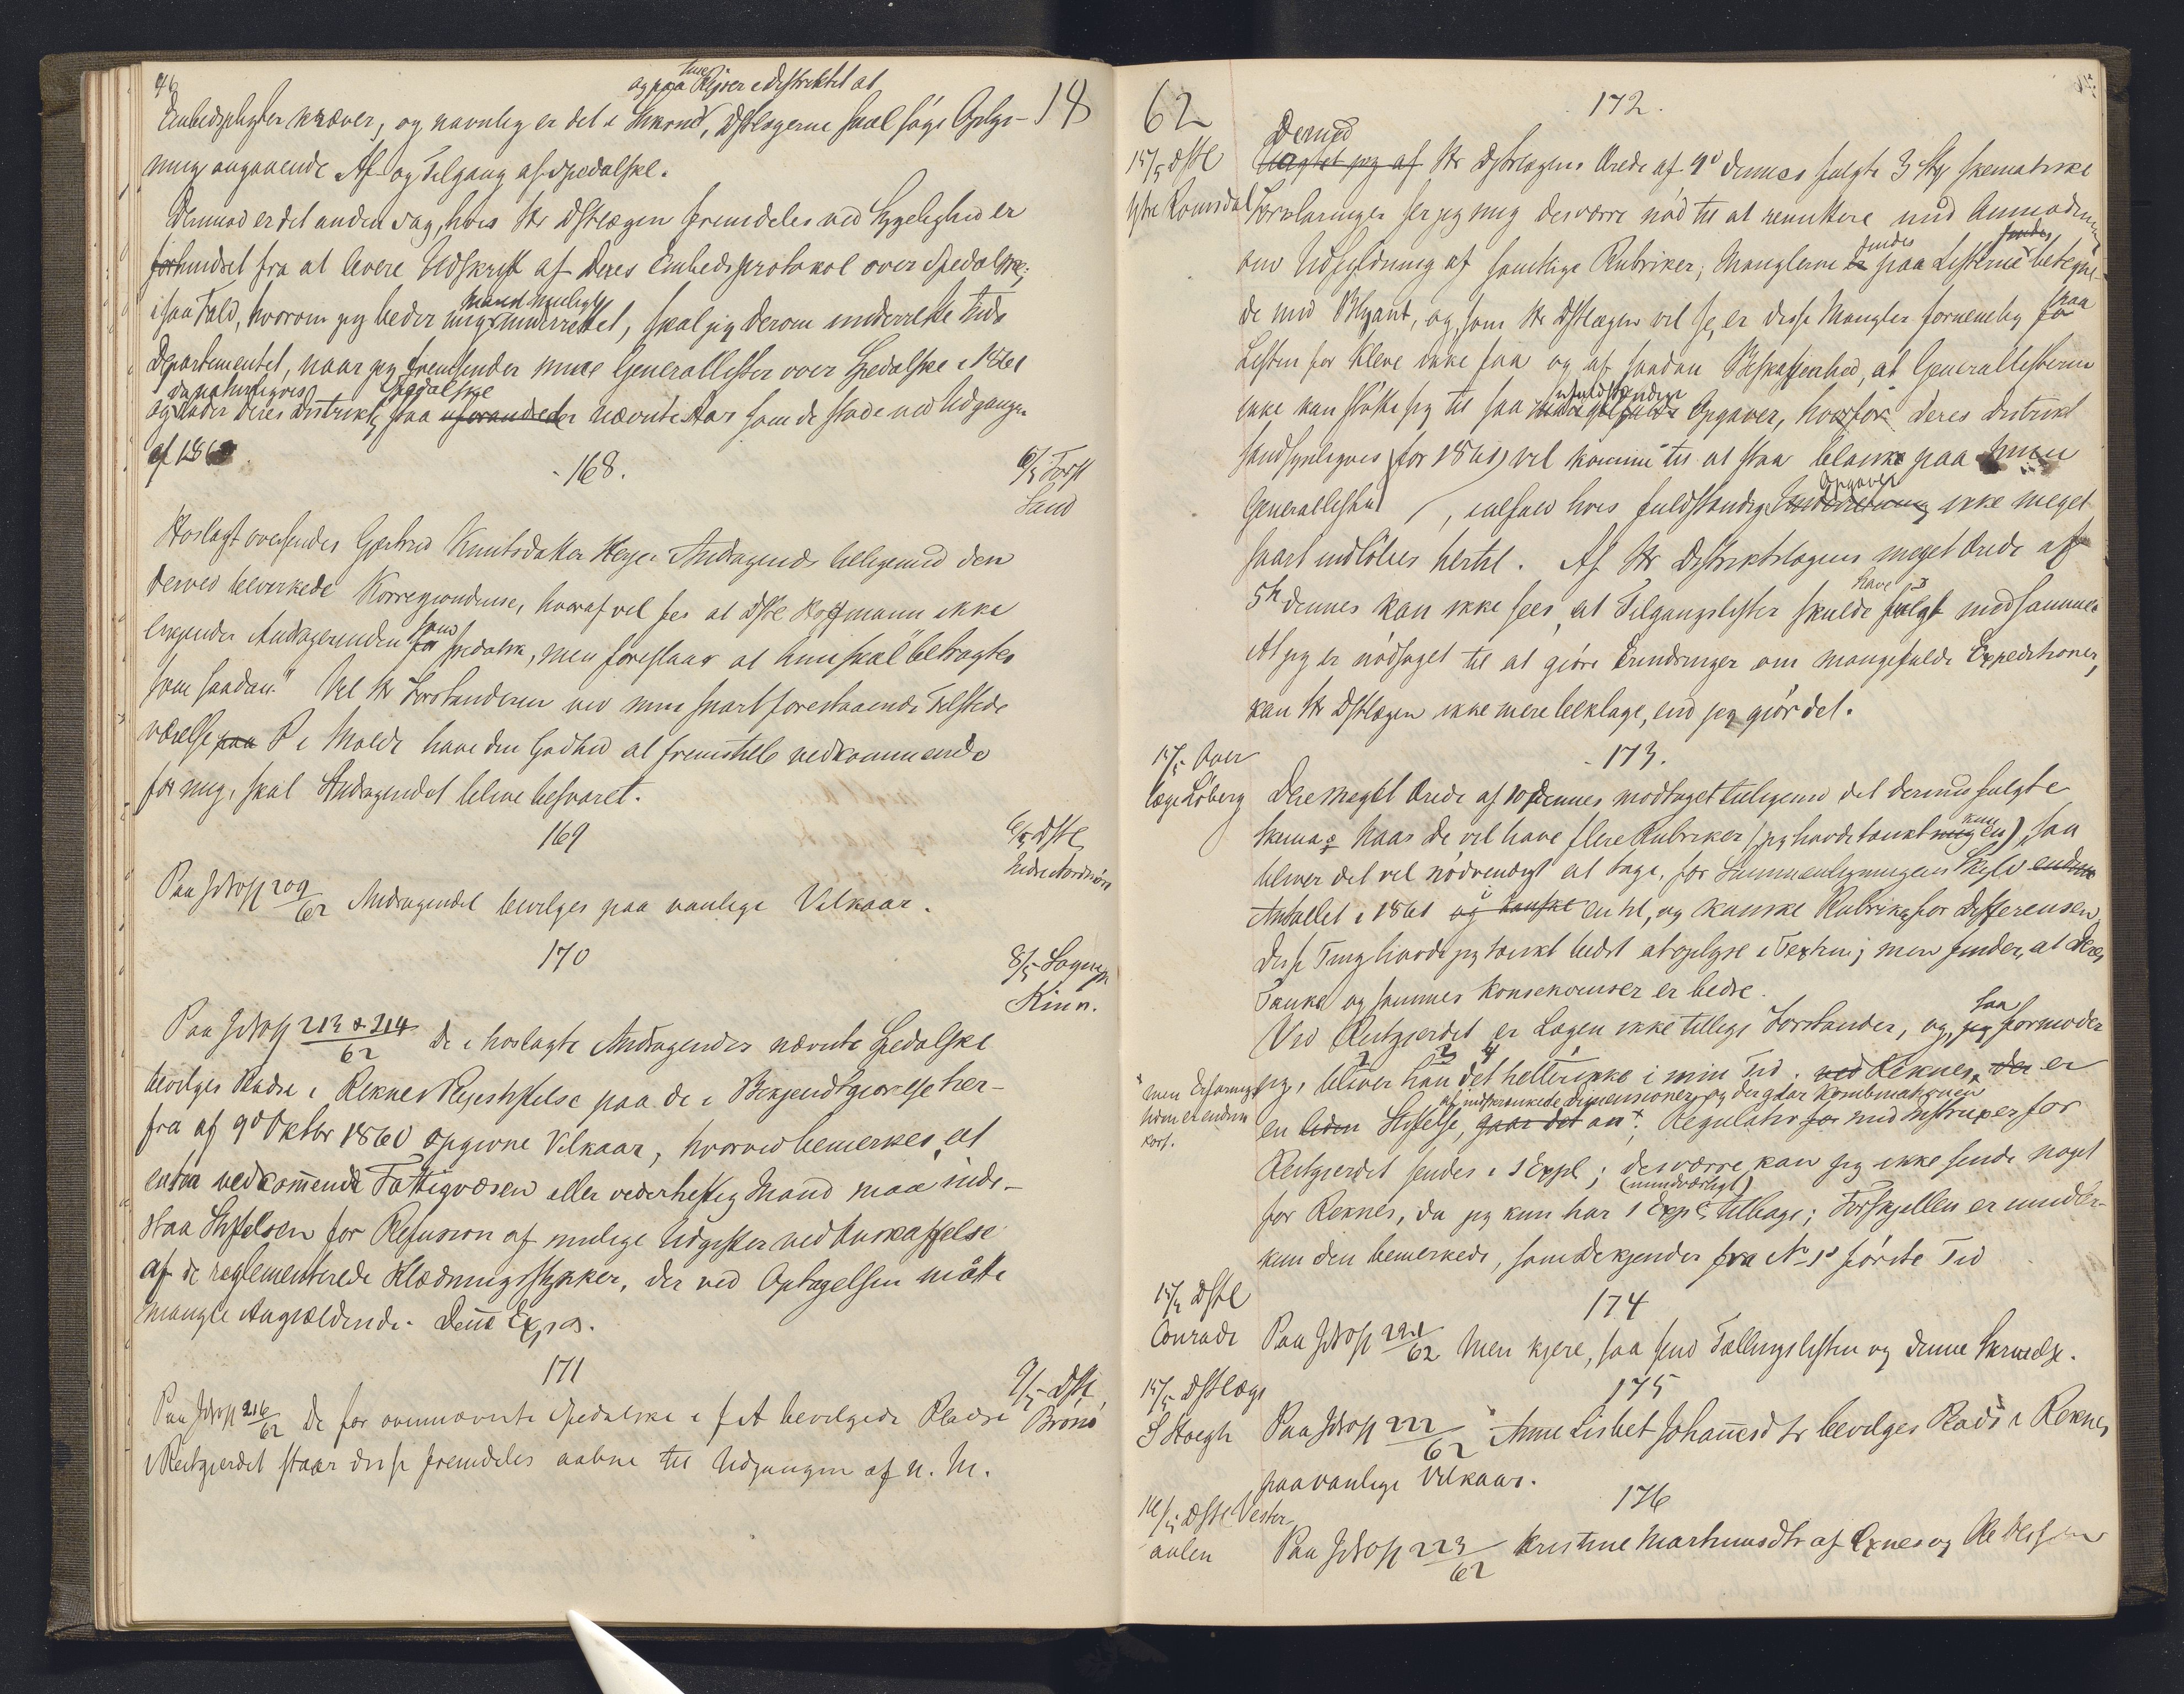 46
og paa Rejser i Distriktet at
18
Embedspligter kræver, og navnlig er det i Lukroned, Dstlægerne skal søge Oplys-
ning angaaende Af- og Tilgang af Spedalske.
Dermed er det anden Sag, hvis Hr Dstlægen fremdeles ved Sygelighed er
forhindret fra at levere Udskrift af Deres Embedsprotokol over Spedalske;
i saa Fald, hvorom jeg beder mig snarest muligt underrettet, skal jeg derom underrette Inds
Departementet, naar jeg fremsender mine Generallister over Spedalske i 1861
da naturligvis Spedalske
og lader Deres Distrikts staa uforandrede nævnte Aar som de stode ved Udgangen
af 1860.
168.
6/5 Forst
Sand
Hoslagt oversendes Gjertrud Knutsdatter Heges Andragende tilligemed den
derved bevirkede Korrespondense, hvoraf vil sees at Dstl Hoffmann ikke
erkjender Andragerinden for som spedalsk, men foreslaar at hun skal "betragtes
som saadan." Vil Hr Forstanderen ved min snart forestaaende Tilstede
værelse paa R i Molde have den Godhed at fremstille vedkommende
for mig, skal Andragendet blive besvaret.
169
6/5 Dstl
Indre Nordmøre
Paa JNo 209/62 Andragendet bevilges paa vanlige Vilkaar.
170
8/5 Sognepr
Kinn.
Paa JNo 213 & 214/62 De i hoslagte Andragender nævnte Spedalske
bevilges Plads i Reknes Plejestiftelse paa de i Bekjendtgjørelse her-
fra af 9d Oktbr 1860 opgivne Vilkaar, hvorved bemerkes, at
enten vedkommende Fattigvæsen eller vederheftig Mand maa inde-
staa Stiftelsen for Refusion af mulige Udgifter ved Anskaffelse
af de reglementerede Klædningsstykker, der ved Optagelsen måtte
mangle Angjældende. Denne Exp s.
171
9/5 Dstl
Brønø
Paa JNo 216/62 De for ovennævnte Spedalske i f A bevilgede Pladse
i Reitgjerdet staar disse fremdeles aabne til Udgangen af n. M.
62
172.
15/5 Dstl
Ytre Romsdal
Dermed
Modtaget jeg af Hr Dstrlægens Ærede af 9d dennes fulgte 3 Stkr skematiske
Forklaringer ser jeg mig desværre nød til at remittere med Anmodning
om Udfyldning af samtlige Rubriker; Manglerne er findes paa Listerne findes betegne-
de med Blyant, og som Hr Dstlægen vil se, er disse Mangler fornemlig for paa
Listen for Kleve ikke faa og af saadan Beskaffenhed, at Generallisterne
ikke kan støtte sig til saa ufuldstændige Opgaver, hvorfor Deres Distrikt
sandsynligvis (for 1861) vil komme til at staa blanke paa min
Generalliste, ialfald hvis fuldstændige Opgaver ikke meget
snart indløbes hertil. Af Hr Distriktslægens meget Ærede af
5te dennes kan ikke sees, at Tilgangslister skulde have fulgt med samme.
At jeg er nødsaget til at gjøre Erindringer om mangefulde Expeditioner,
kan Hr Dstlægen ikke mere beklage, end jeg gjør det.
173.
15/5 Over
læge Løberg
Deres meget Ærede af 10 dennes modtaget tilligemed det dermed fulgte
Skema: Naar De vil have flere Rubriker (jeg havde tænkt mig kun en), saa
bliver det vel nødvendigt at tage, for Sammenligningens Skyld endnu
Antallet i 1861 og kanske en til, og kanske Rubrik for Differensen.
Disse Ting havde jeg tænkt bedst at oplyse i Texten; men finder, at Deres
Tanke og sammes Konsekvenser er bedre.
Ved Reitgjerdet er Lægen ikke tillige Forstander, og, jeg saa formoder
jeg, bliver han det heller ikke i min Tid. ved Reknes, der er
af indskrænkede Dimensioner, og der gaar Kombinationen
en liden Stiftelse, gaar det an x; Regulativ for med Instruxer for
x men Erfaringstiden er endnu
kort.
Reitgjerdet sendes i 1 Expl; desværre kan jeg ikke sende noget
for Reknes, da jeg kun har 1 Expl (uundværligt) tilbage; Forskjellen er imidler-
kun den bemerkede, som De kjender fra No 1s første Tid
174
15/5 Dstl
Conradi
Paa JNo 221/62 Men kjere, saa send Tællingslisten og denne Skrivelse.
175
15/5 Dstlæge
S Høegh
Paa JNo 222/62 Anne Lisbet Johannesdtr bevilges Plads i Reknes
paa vanlige Vilkaar.
176
16/5 Dstl Vester-
aalen
Paa JNo 223/62 Kristine Martinusdtr af Exnes og